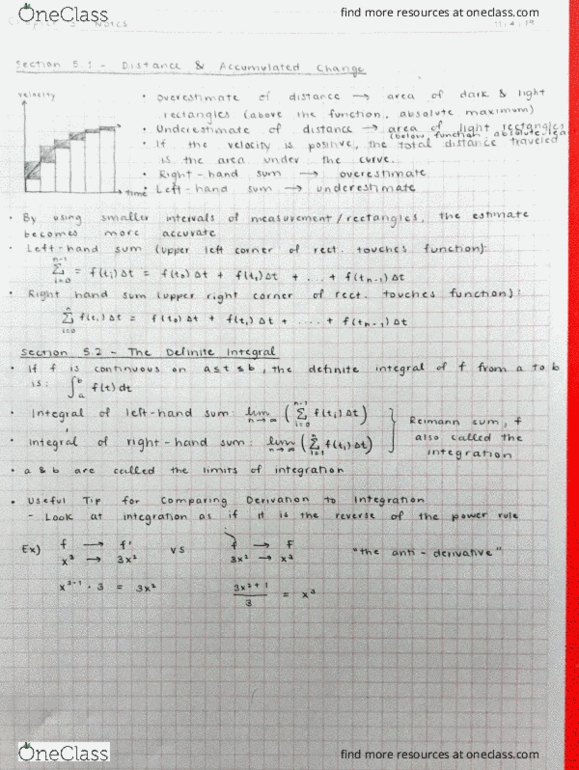 OneClass
find more resources at oneclass.com
Notes
Section 5.1 - Distance & Accumulated Change
velocity
time
• Overestimate of distance → area of dark & light
rectangles (above the function, absolute maximum)
• Underestimate of distance → area of light rectangles
(below function, absolute lea
• If the velocity is positive, the total distance traveled
is the area under the curve.
• Right-hand sum → overestimate
• Left-hand sum → underestimate
• By using smaller intervals of measurement/rectangles, the estimate
becomes more accurate
• Left-hand sum (upper left corner of rect. touches function):
n-1 Σ i=0 = f(ti) Δt = f(t0) Δt + f(t1) Δt + ... + f(tn-1) Δt
• Right hand sum (upper right corner of rect. touches function):
n Σ i=0 f(ti) Δt = f(t0) Δt + f(t1) Δt + .... + f(tn-1) Δt
Section 5.2 - The Definite Integral
• If f is continuous on a≤t≤b, the definite integral of f from a to b
is: ∫ab f(t) dt
• Integral of left-hand sum: lim n→∞ (n-1 Σ i=0 f(ti) Δt)
• integral of right-hand sum: lim n→∞ (n Σ i=1 f(ti) Δt)
Reimann sum, f
also called the
integration
• a & b are called the limits of integration
• Useful Tip for Comparing Derivation to Integration
- Look at integration as if it is the reverse of the power rule
Ex) f → f' vs f → F "the anti-derivative"
x³ → 3x² 3x² → x³
x³⁻¹ · 3 = 3x² 3x²⁺¹ / 3 = x³
OneClass
find more resources at oneclass.com